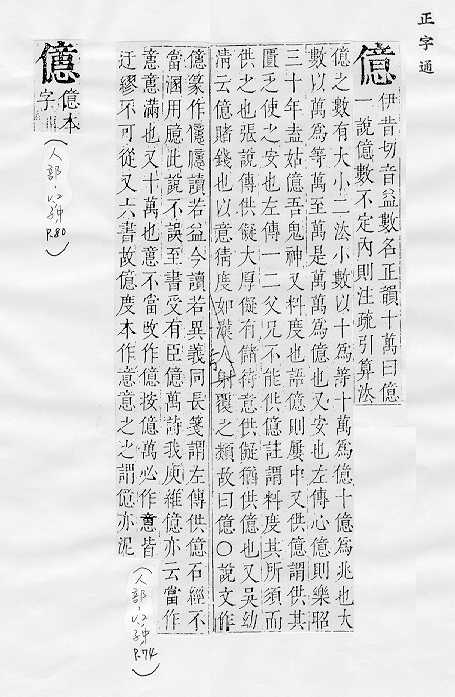 正字通
億
伊昔切音益數名正韻十萬曰億
一說億數不定內則注疏引算法
億之數有大小二法小數以十爲等十萬爲億十億爲兆也大
數以萬爲等萬至萬是萬萬爲億也又安也左傳心億則樂昭
三十年盍姑億吾鬼神又料度也語億則屢中又供億謂供其
匱乏使之安也左傳一二父兄不能供億註謂料度其所須而
供之也張說傳供儗大厚儗有儲待意供儗猶供億也又吳幼
清云億賭錢也以意猜度如漢人射覆之類故曰億○說文作
㒕篆作㒕㒕讀若益今讀若異義同長箋謂左傳供億石經不
當溷用臆此說不誤至書受有臣億萬詩我庾維億亦云當作
意意滿也又十萬也意不當改作億按億萬必作意皆
迂繆不可從又六書故億度本作意意之之謂億亦泥
(人部·13畫 P.74)
㒕
億本
字
(人部·13畫 P.80)